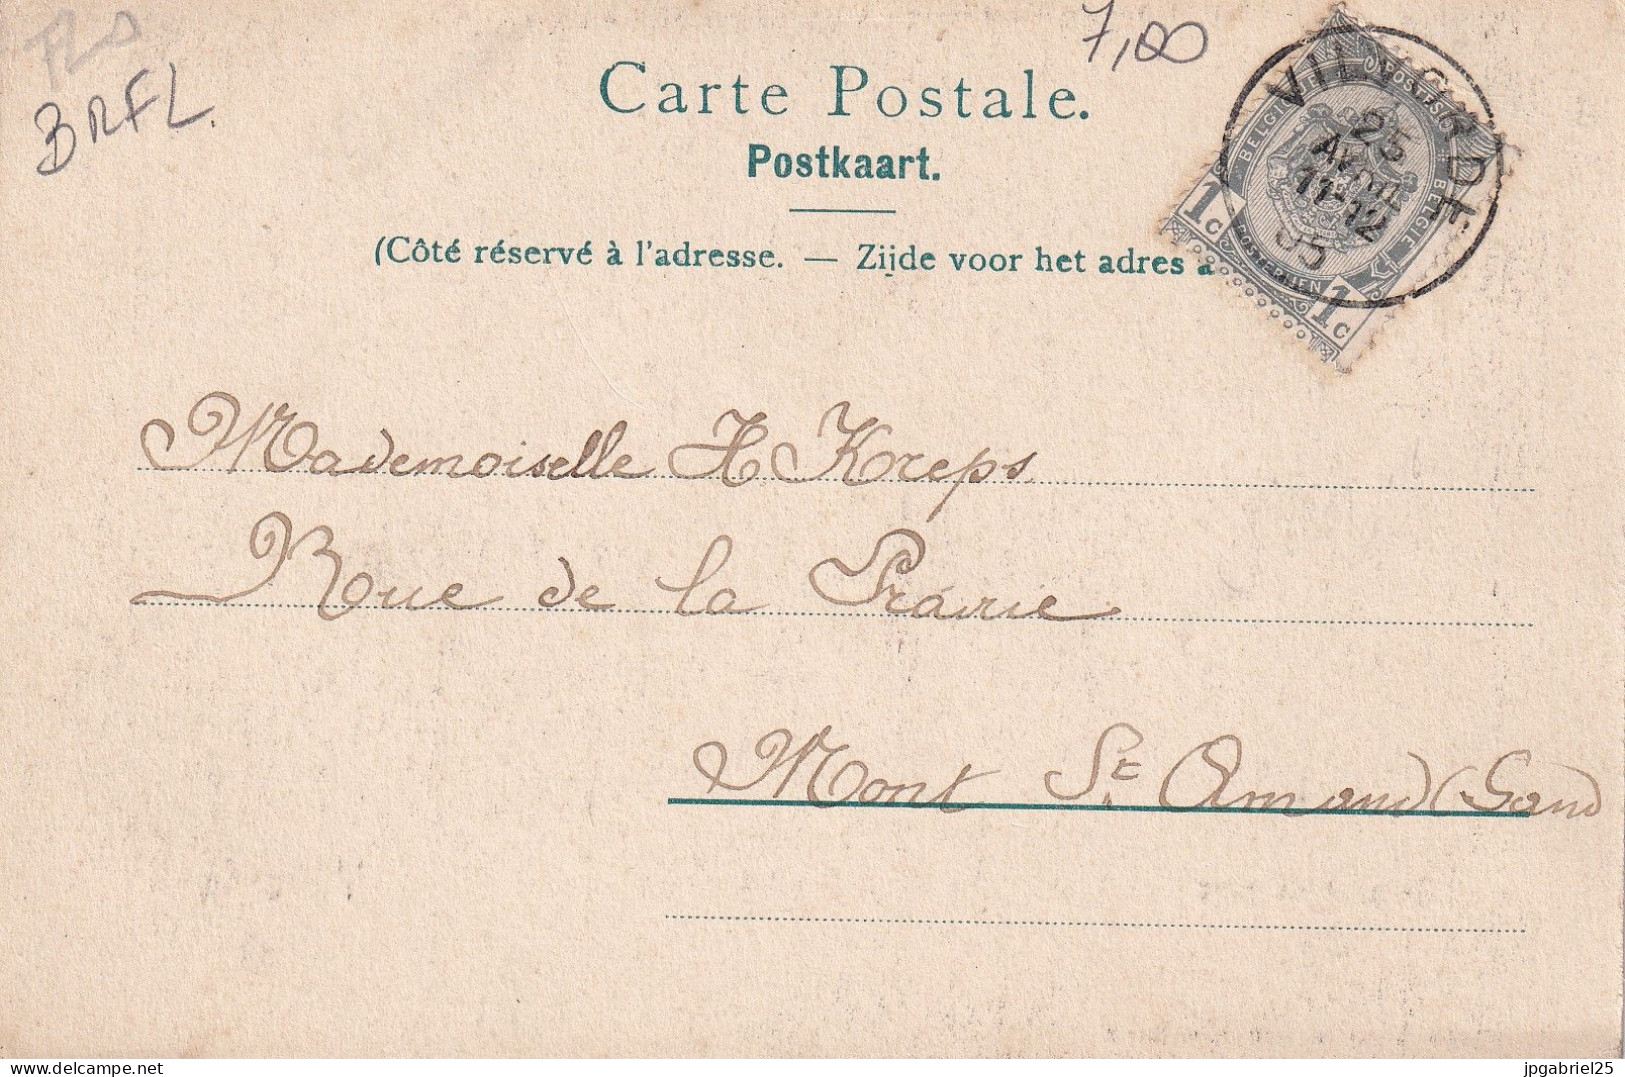 BRFL.
7,00
Carte Postale.
Postkaart.
(Côté réservé à l'adresse. — Zijde voor het adres
VILVORDE
25
AVRIL
11-12
05
POSTES
BELGIQUE
BELGIË
1c
1c
Mademoiselle H Kreps
Rue de la Prairie
Mont St Amand (Gand
delcampe.net
jpgabriel25